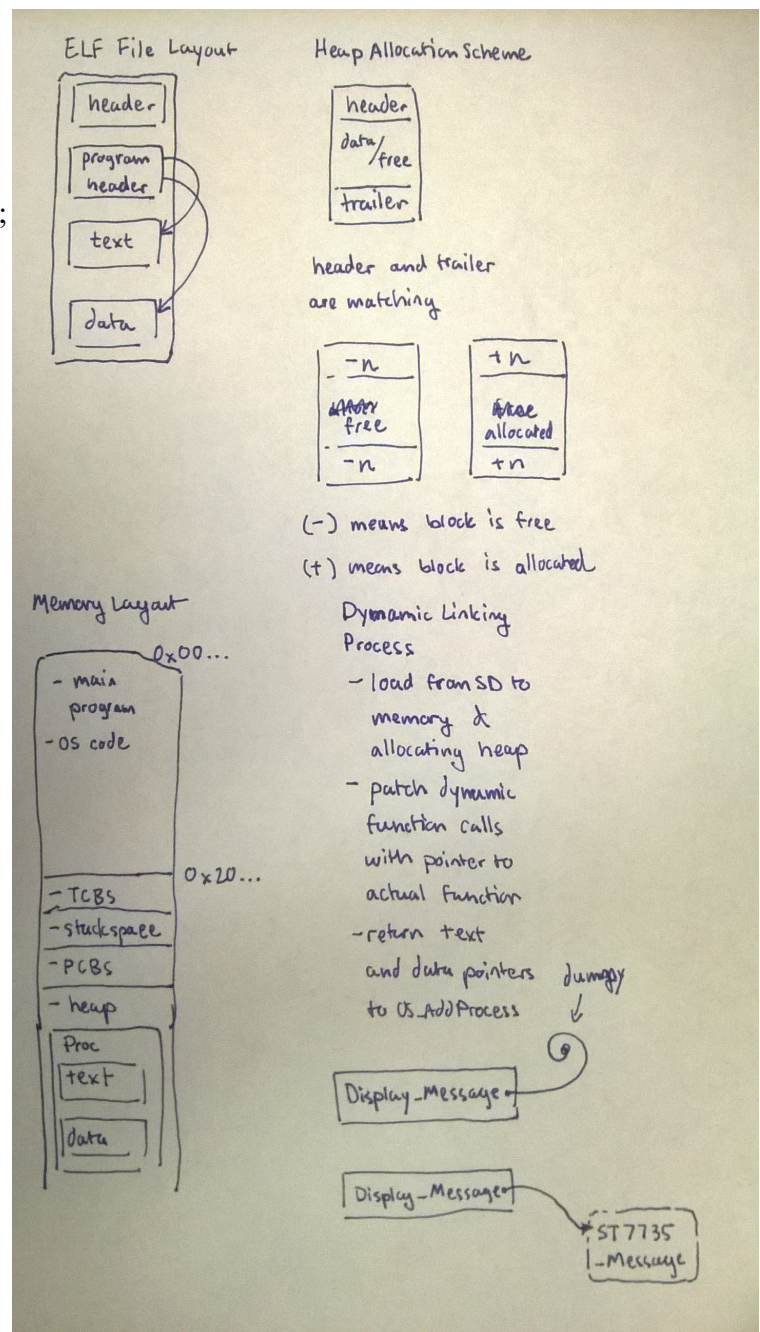 ;
ELF File Layout
header
program
header
text
data
Heap Allocation Scheme
header
data/free
trailer
header and trailer
are matching
-n
free
-n
+n
allocated
+n
(-) means block is free
(+) means block is allocated
Memory Layout
0x00...
- main
program
- OS code
0x20...
- TCBS
- stackspace
- PCBS
- heap
Proc
text
data
Dynamic Linking
Process
- load from SD to
memory &
allocating heap
- patch dynamic
function calls
with pointer to
actual function
- return text
and data pointers
to OS_AddProcess
Display_Message
Display_Message
ST7735
_Message